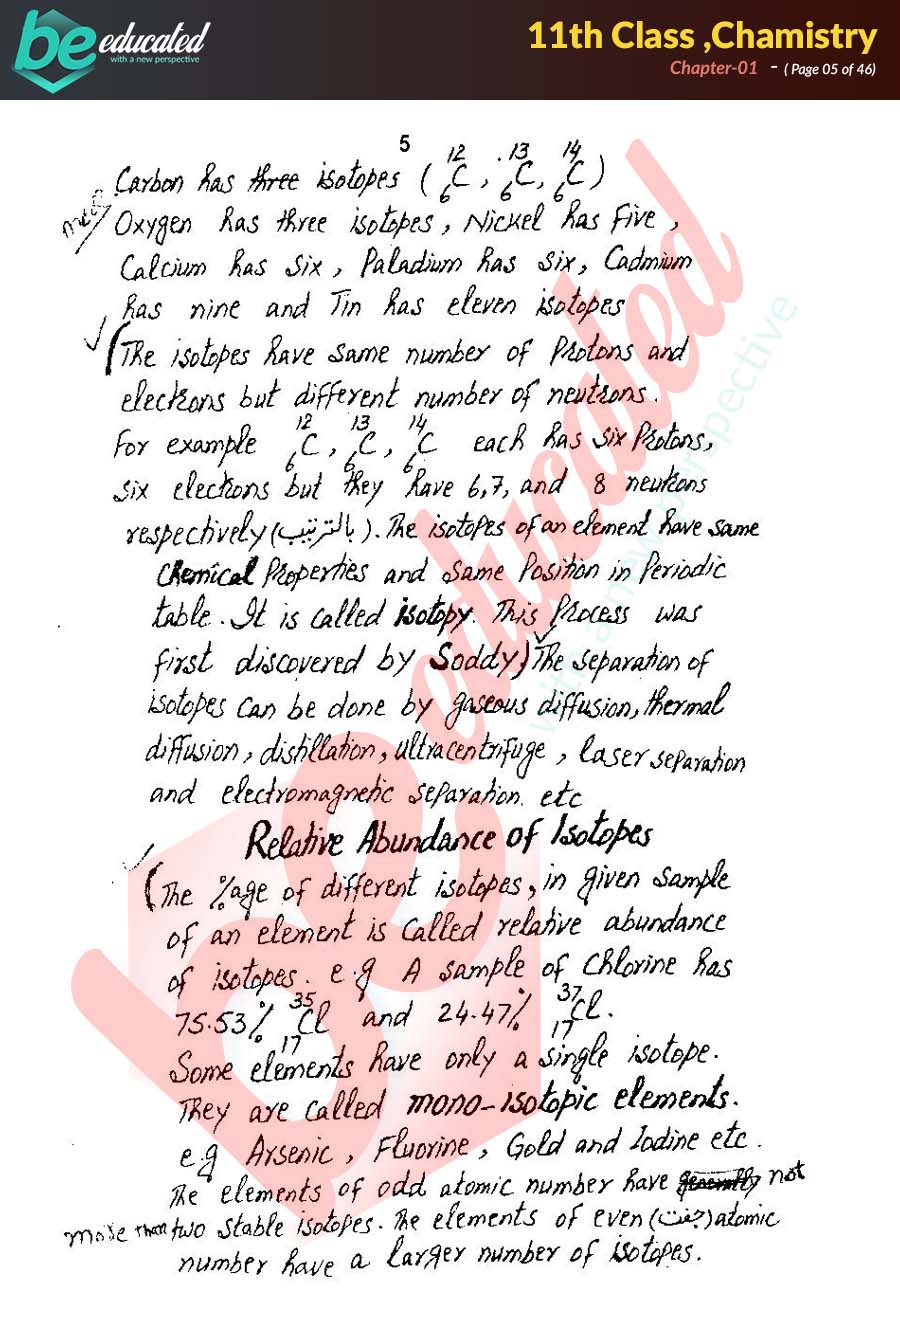 be educated
with a new perspective
11th Class ,Chamistry
Chapter-01 - ( Page 05 of 46)
5
Carbon has three isotopes ( ¹²₆C , ¹³₆C, ¹⁴₆C )
Oxygen has three isotopes , Nickel has Five ,
Calcium has six , Paladium has six, Cadmium
has nine and Tin has eleven isotopes
(The isotopes have same number of Protons and
electrons but different number of neutrons.
For example ¹²₆C , ¹³₆C , ¹⁴₆C each has six Protons,
six electrons but they have 6,7, and 8 neutrons
respectively (بالترتیب). The isotopes of an element have same
Chemical Properties and same Position in Periodic
table. It is called isotopy. This Process was
first discovered by Soddy) The separation of
isotopes can be done by gaseous diffusion, thermal
diffusion , distillation , ultracentrifuge , laser separation
and electromagnetic separation. etc
Relative Abundance of Isotopes
(The %age of different isotopes, in given sample
of an element is called relative abundance
of isotopes. e.g A sample of Chlorine has
75.53% ³⁵₁₇Cl and 24.47% ³⁷₁₇Cl.
Some elements have only a single isotope.
They are called mono-isotopic elements.
e.g Arsenic , Fluorine , Gold and Iodine etc .
The elements of odd atomic number have not
more than two stable isotopes. The elements of even (جفت) atomic
number have a larger number of isotopes.
be educated
with a new perspective